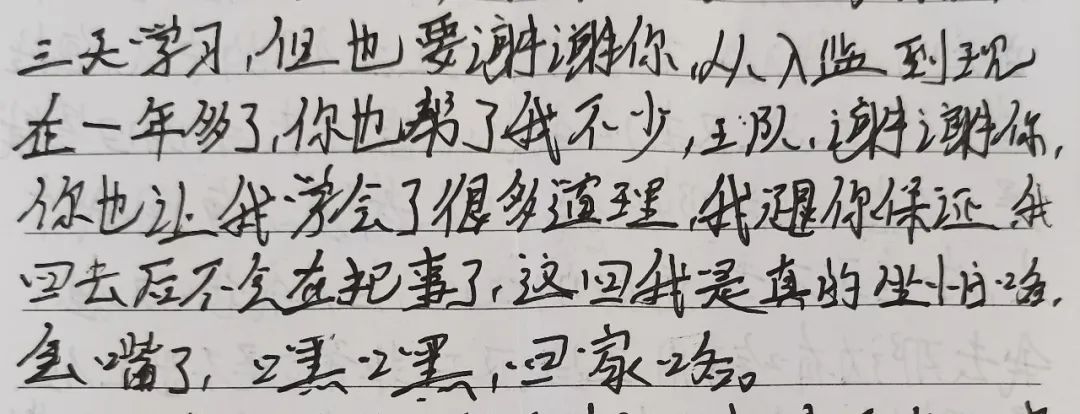 三天学习,但也要谢谢你,从入监到现
在一年多了,你也帮了我不少,王队,谢谢你,
你也让我学会了很多道理,我跟你保证我
回去后不会在犯事了,这回我是真的坐怕咯,
会嘴了,嘿嘿,回家咯。